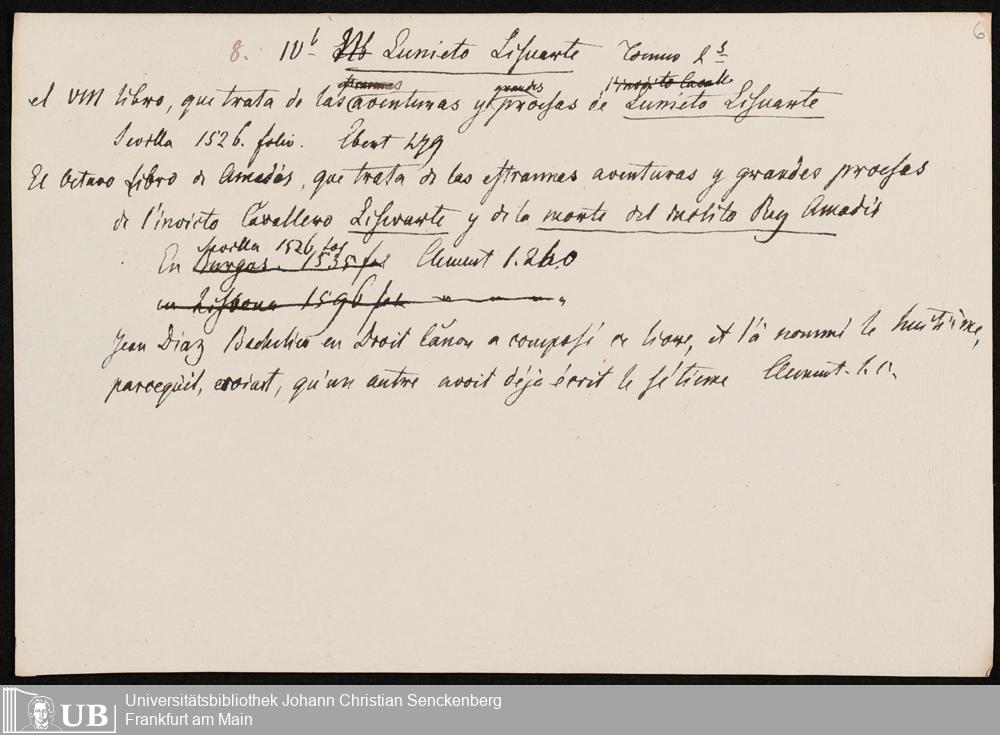 6
8. IV b Lunieto Lisuarte Tomus 2 s
estrannas grandes l'invicto Cavall
el VIII libro, que trata de las aventuras y proesas de Lunieto Lisuarte
Sevilla 1526. folio. Ebert 479
El Octavo Libro de Amadis, que trata de las estrannas aventuras y grandes proesas
de l'invicto Cavallero Lisuarte y de la morte del inclito Rey Amadis
Sevilla 1526 fol
En Burgos. 1535 fol Clement 1. 240
en Lisbona 1596 fol
Jean Diaz Bachelier en Droit Cánon a composé ce livre, et l'a nommé le huitième,
parcequ'il, croiait, qu'un autre avoit déja écrit le sétieme Clement. l. c.
Universitätsbibliothek Johann Christian Senckenberg
UB Frankfurt am Main